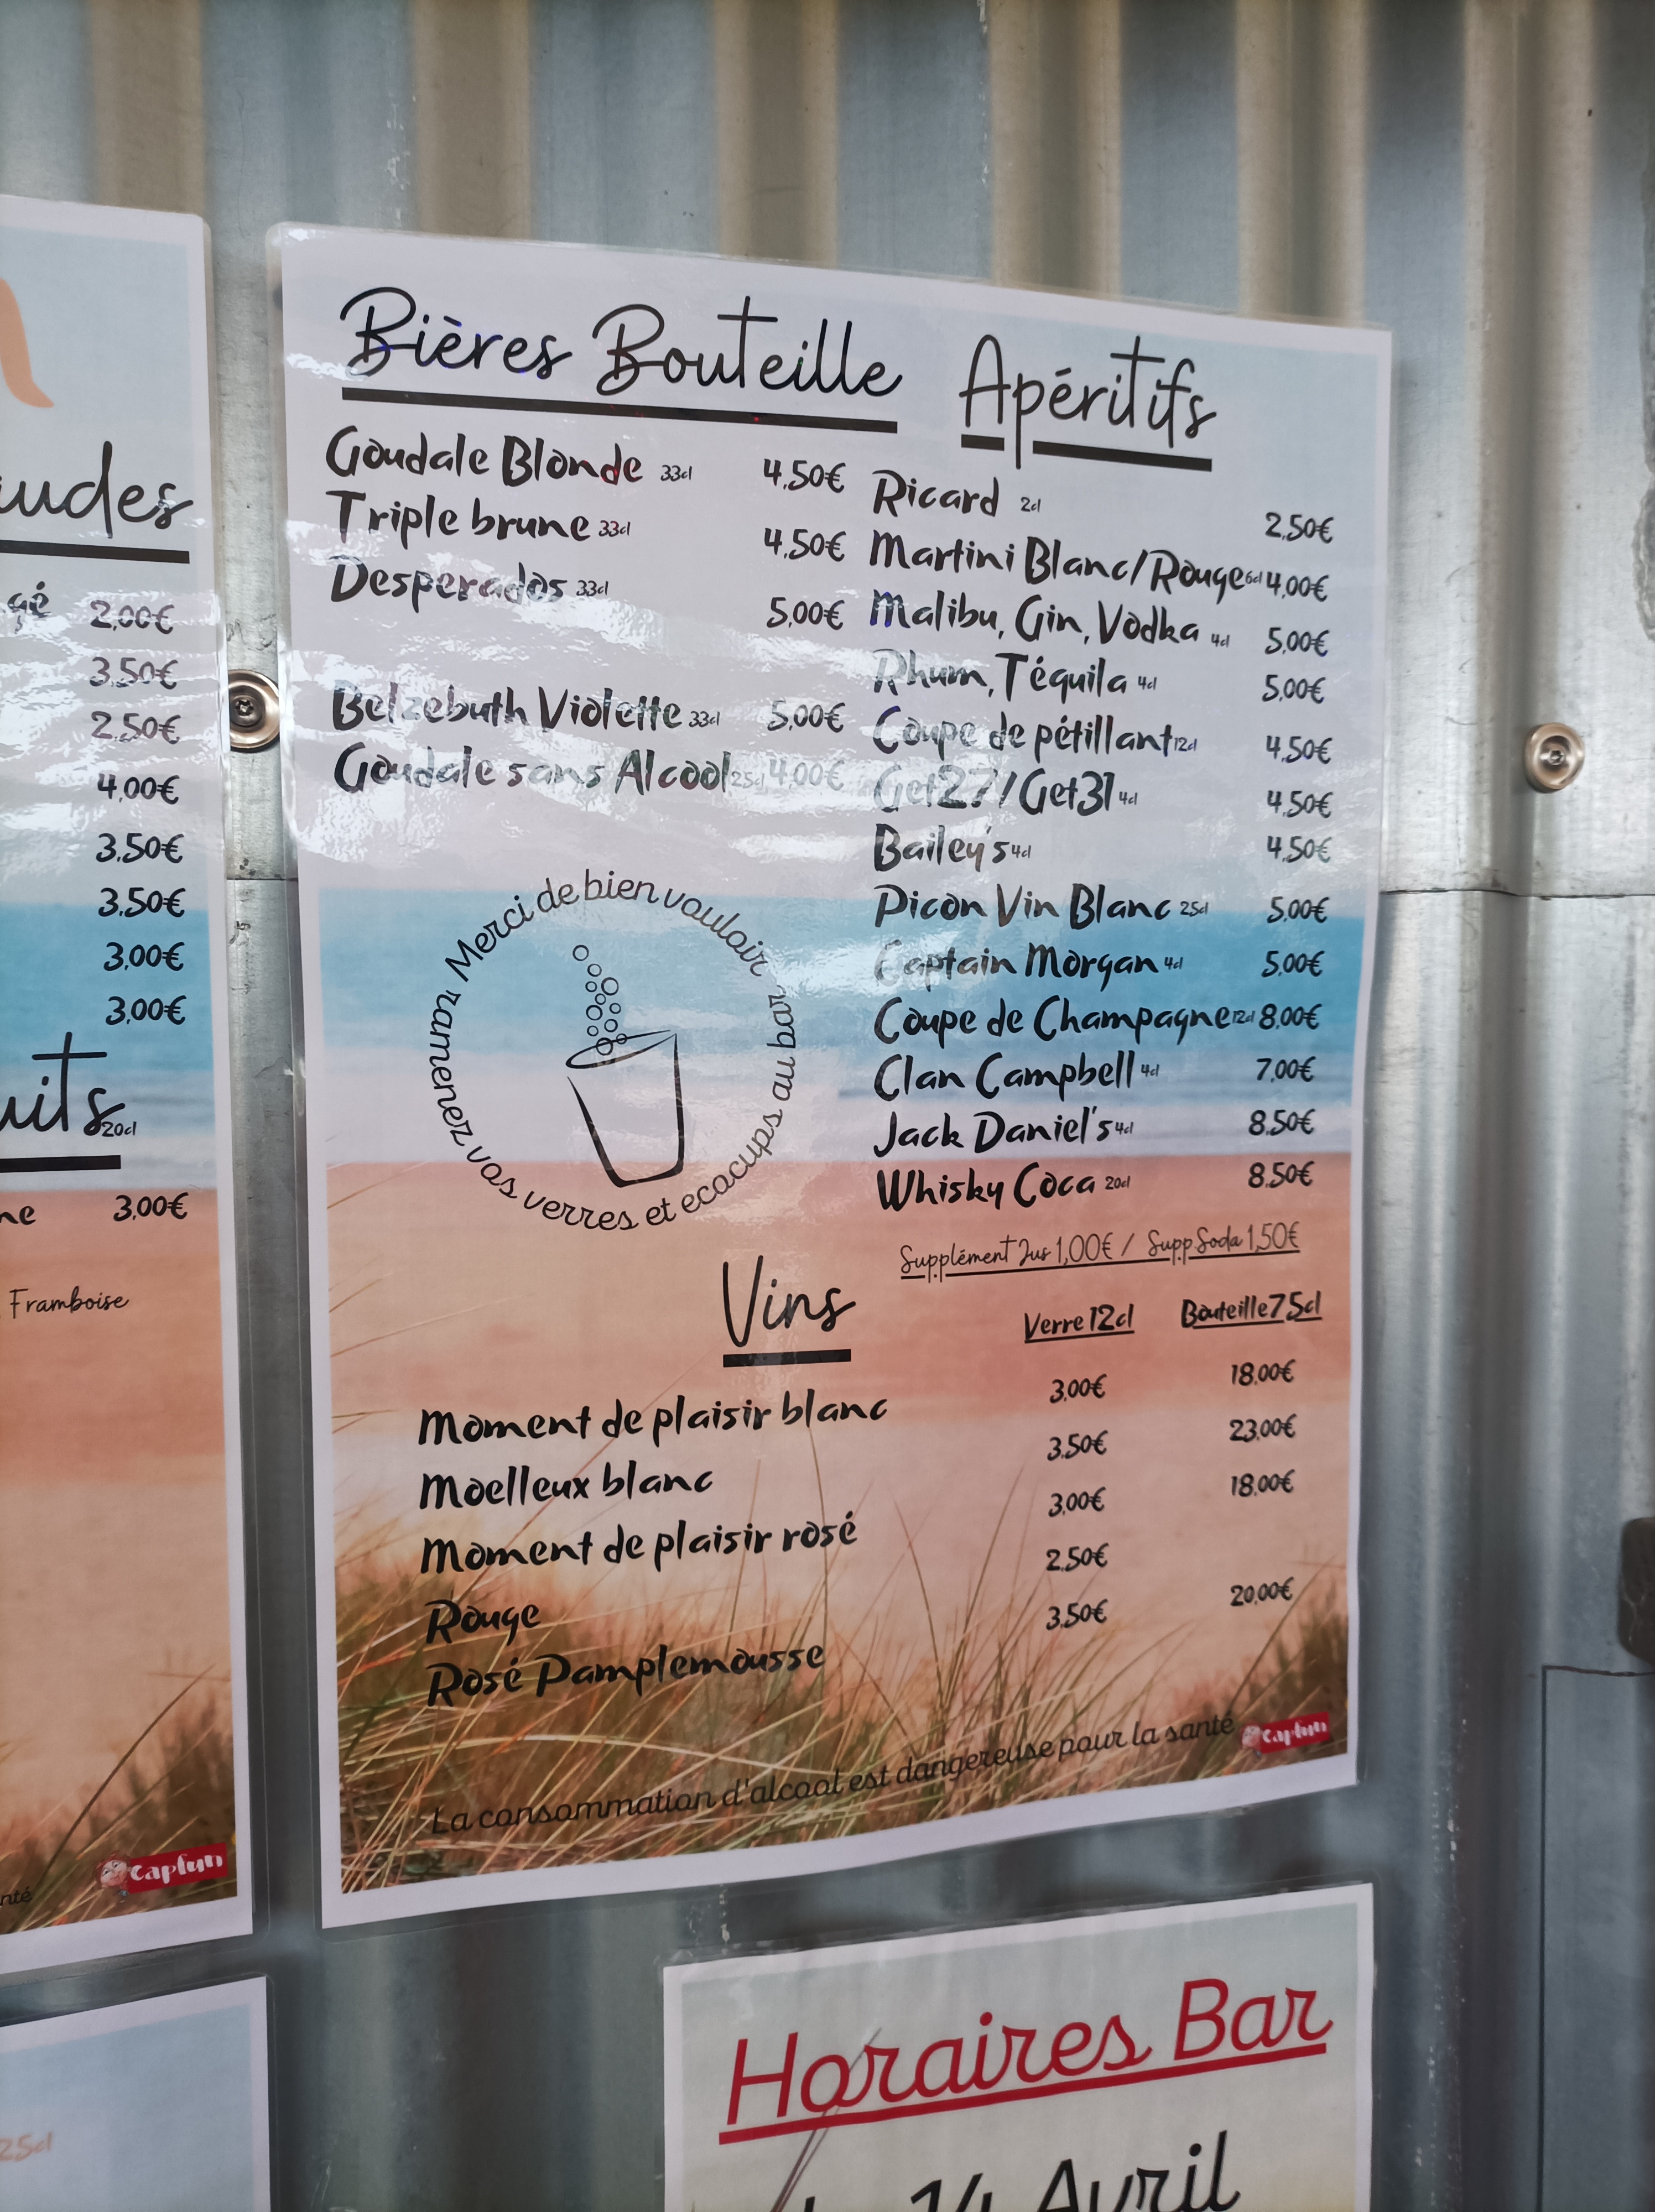 udes
gé 2,00€
3,50€
2,50€
4,00€
3,50€
3,50€
3,00€
3,00€
uits 20cl
ne 3,00€
Framboise
nté
capfun
25cl
Bières Bouteille
Goudale Blonde 33cl 4,50€
Triple brune 33cl 4,50€
Desperados 33cl 5,00€
Belzebuth Violette 33cl 5,00€
Goudale sans Alcool 25cl 4,00€
Merci de bien vouloir ramener vos verres et ecocups au bar
Apéritifs
Ricard 2cl 2,50€
Martini Blanc/Rouge 6cl 4,00€
Malibu, Gin, Vodka 4cl 5,00€
Rhum, Téquila 4cl 5,00€
Coupe de pétillant 12cl 4,50€
Get27/Get31 4cl 4,50€
Bailey's 4cl 4,50€
Picon Vin Blanc 25cl 5,00€
Captain Morgan 4cl 5,00€
Coupe de Champagne 12cl 8,00€
Clan Campbell 4cl 7,00€
Jack Daniel's 4cl 8,50€
Whisky Coca 20cl 8,50€
Supplément Jus 1,00€ / Supp Soda 1,50€
Vins Verre 12cl Bouteille 75cl
Moment de plaisir blanc 3,00€ 18,00€
Moelleux blanc 3,50€ 23,00€
Moment de plaisir rosé 3,00€ 18,00€
Rouge 2,50€
Rosé Pamplemousse 3,50€ 20,00€
La consommation d'alcool est dangereuse pour la santé
capfun
Horaires Bar
14 Avril